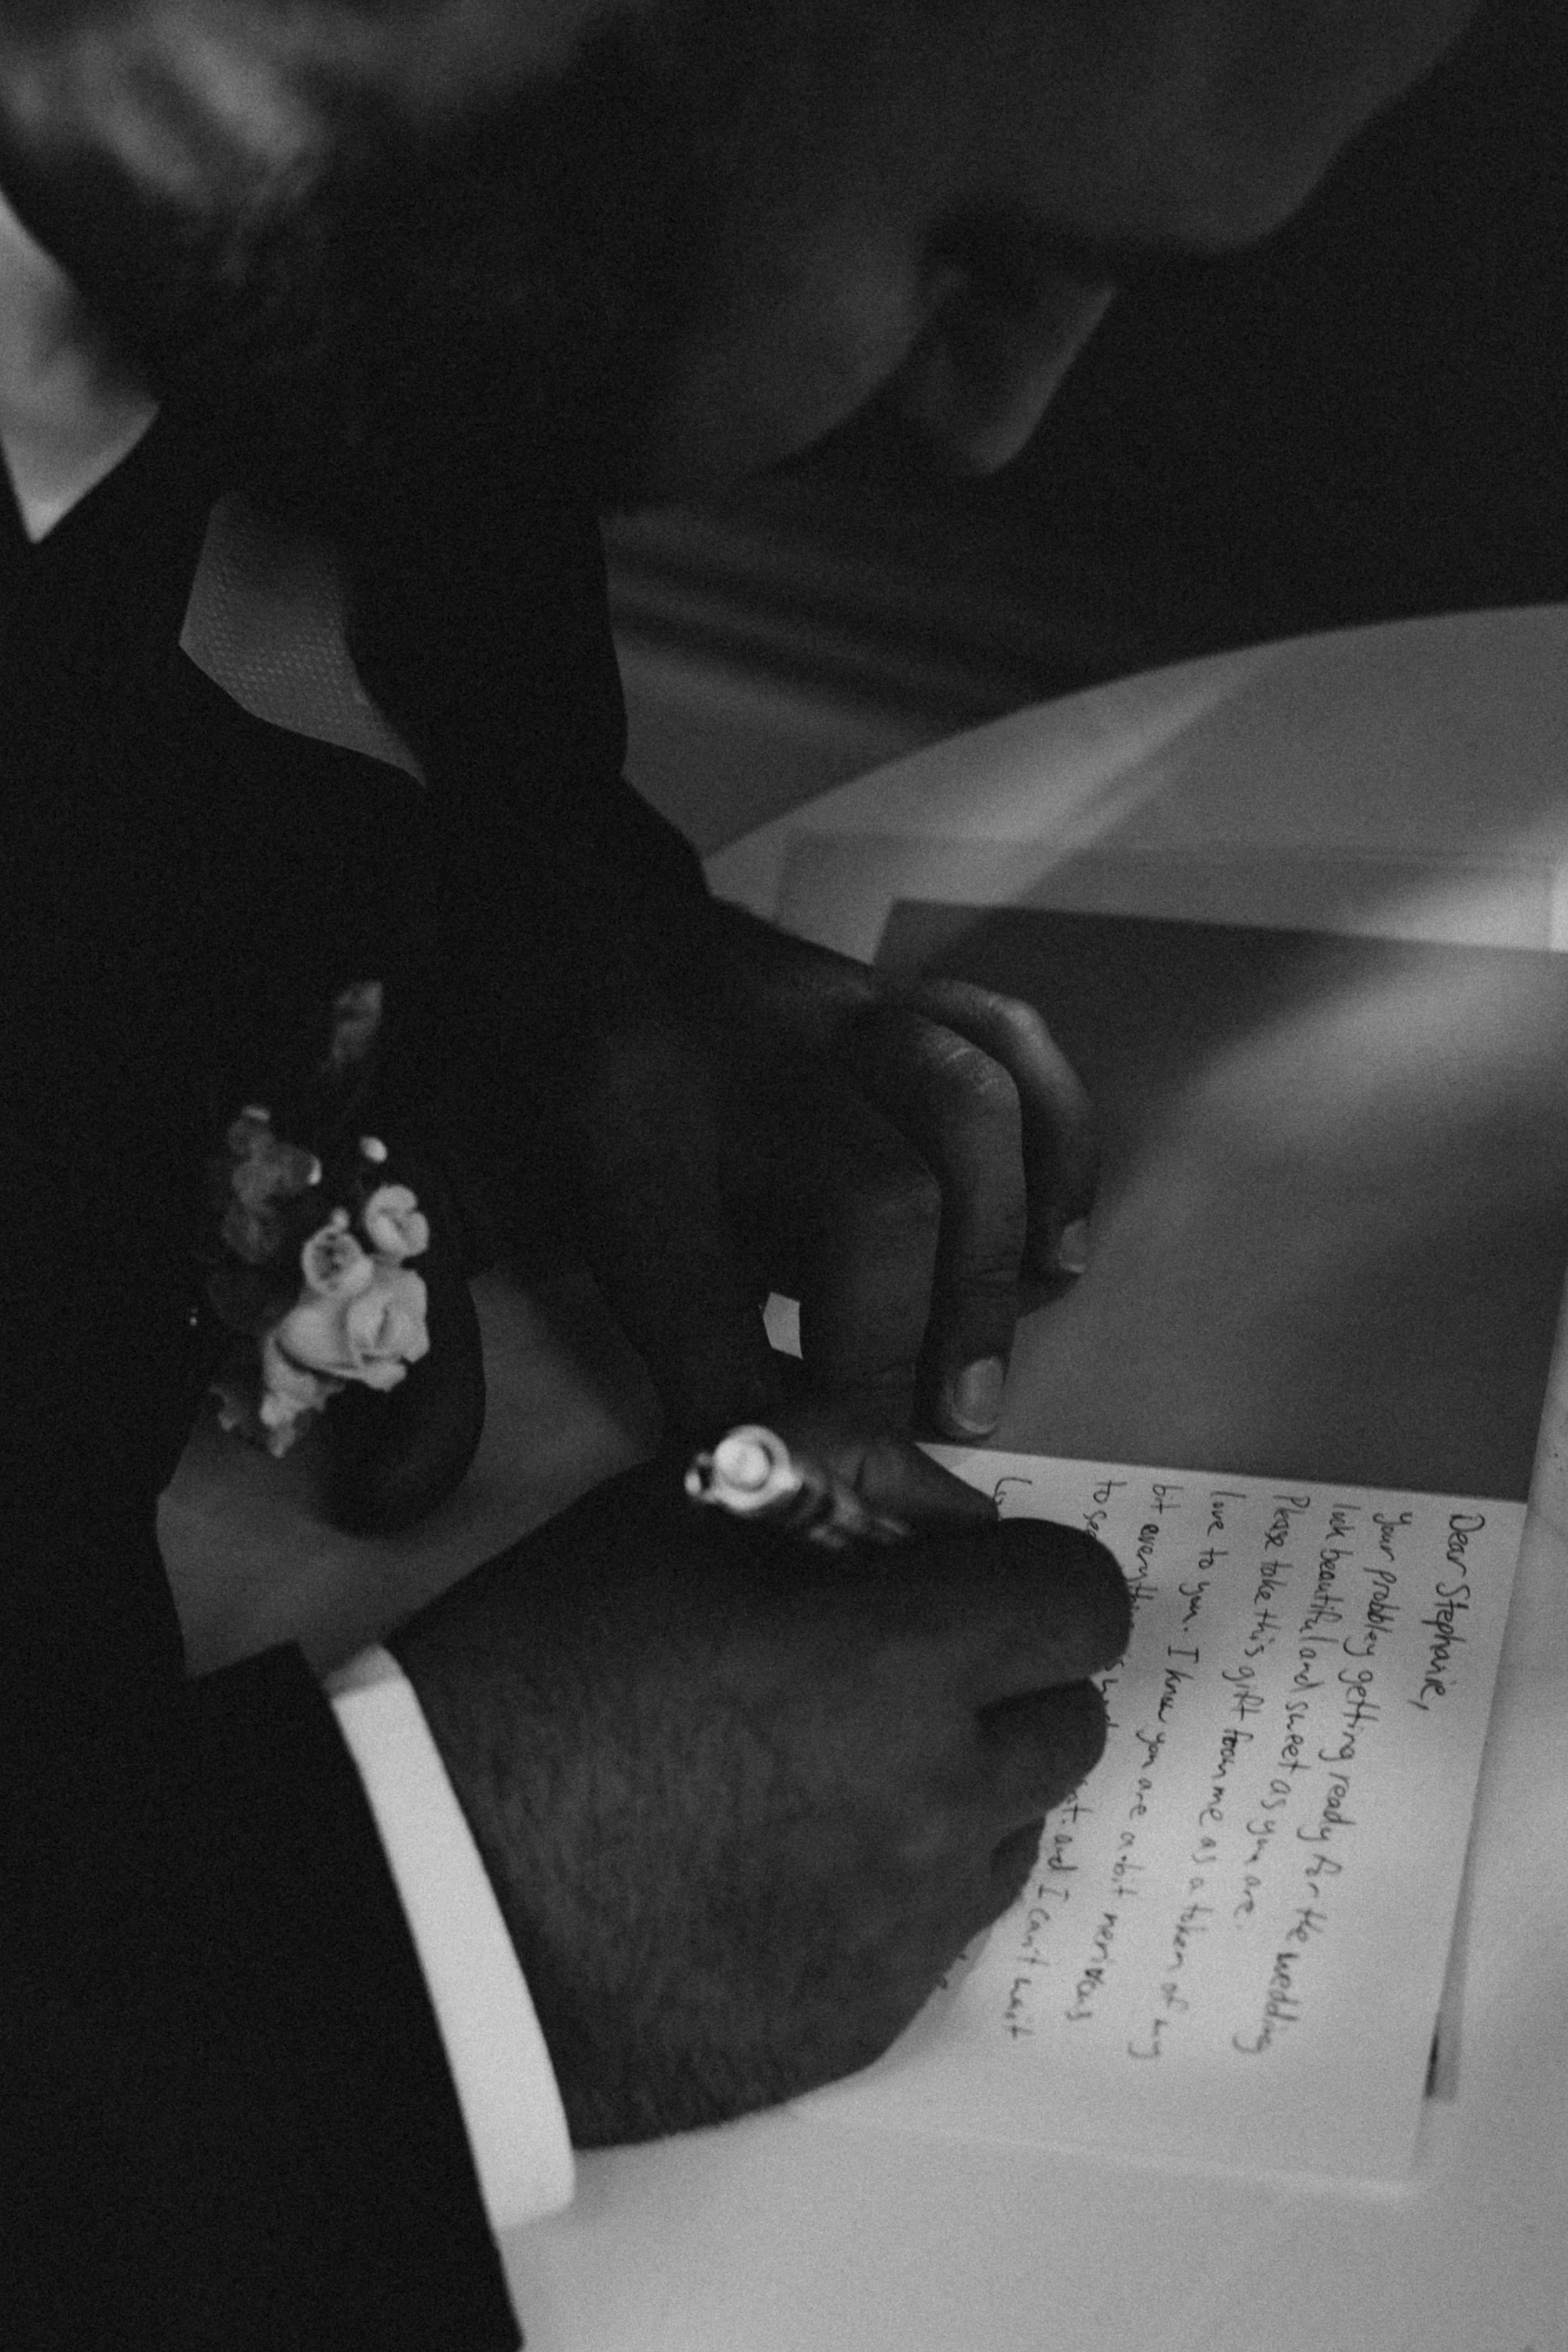 Dear Stephanie,
Your probbley getting ready for the wedding
look beautiful and sweet as you are.
Please take this gift from me as a token of my
love to you. I know you are a bit nervious
bt everything and I can't wait
to see